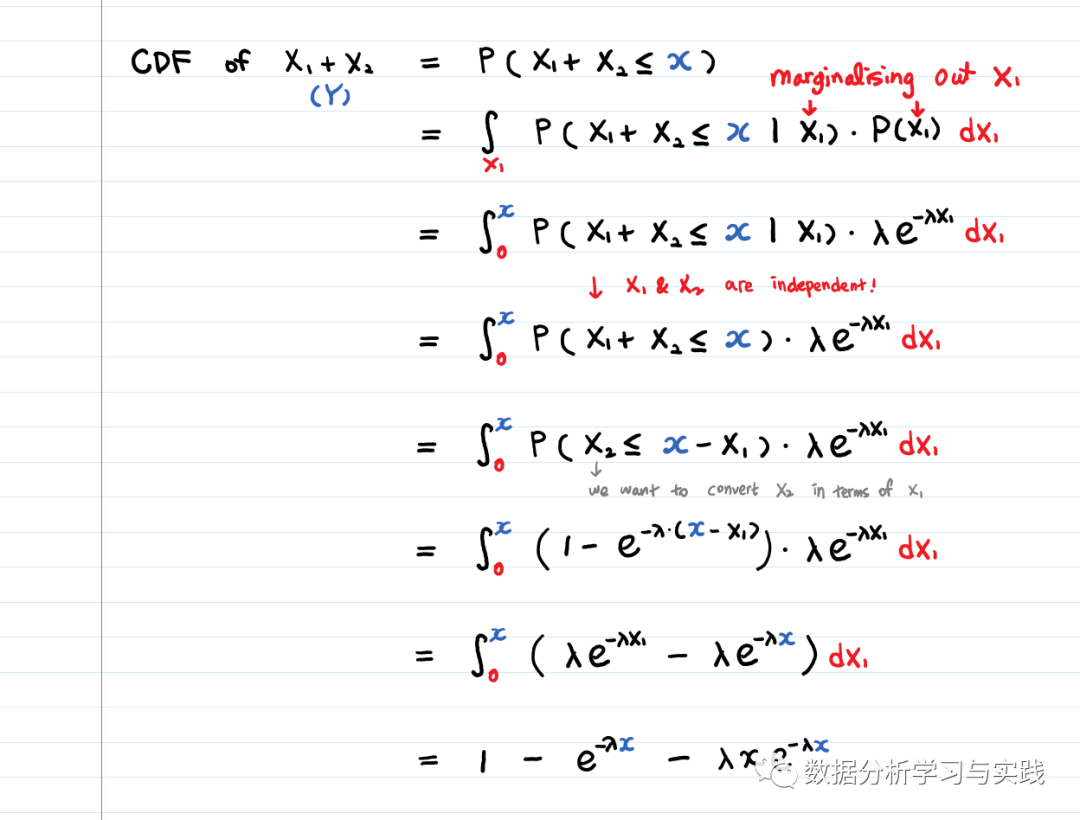 CDF of X₁ + X₂ = P( X₁ + X₂ ≤ x )
(Y)
marginalising out X₁
↓ ↓
= ∫_X₁ P( X₁ + X₂ ≤ x | X₁) · P(X₁) dX₁
= ∫₀ˣ P( X₁ + X₂ ≤ x | X₁) · λe^(-λX₁) dX₁
↓ X₁ & X₂ are independent!
= ∫₀ˣ P( X₁ + X₂ ≤ x ) · λe^(-λX₁) dX₁
= ∫₀ˣ P( X₂ ≤ x - X₁ ) · λe^(-λX₁) dX₁
↓
we want to convert X₂ in terms of X₁
= ∫₀ˣ (1 - e^(-λ·(x - X₁))) · λe^(-λX₁) dX₁
= ∫₀ˣ ( λe^(-λX₁) - λe^(-λx) ) dX₁
= 1 - e^(-λx) - λxe^(-λx)
数据分析学习与实践